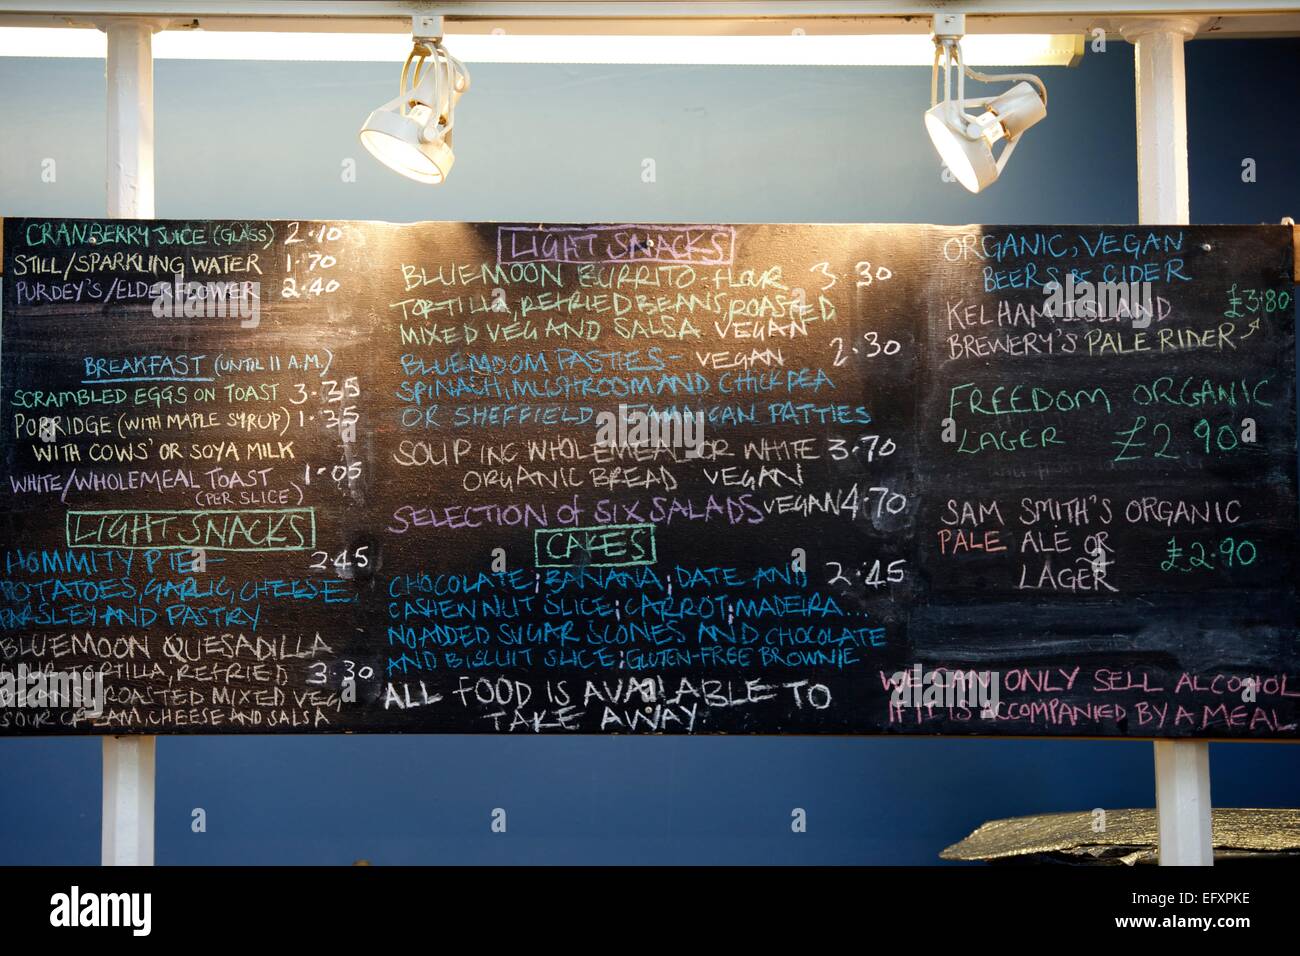 CRANBERRY JUICE (GLASS) 2.10
STILL/SPARKLING WATER 1.70
PURDEY'S/ELDERFLOWER 2.40
BREAKFAST (UNTIL 11 A.M.)
SCRAMBLED EGGS ON TOAST 3.35
PORRIDGE (WITH MAPLE SYRUP) 1.35
WITH COWS' OR SOYA MILK
WHITE/WHOLEMEAL TOAST 1.05
(PER SLICE)
LIGHT SNACKS
HOMMITY PIE- 2.45
POTATOES, GARLIC, CHEESE,
PARSLEY AND PASTRY
BLUEMOON QUESADILLA
FLOUR TORTILLA, REFRIED 3.30
BEANS, ROASTED MIXED VEG
SOUR CREAM, CHEESE AND SALSA
LIGHT SNACKS
BLUEMOON BURRITO-FLOUR 3.30
TORTILLA, REFRIED BEANS, ROASTED
MIXED VEG AND SALSA VEGAN
BLUEMOOM PASTIES- VEGAN 2.30
SPINASH, MUSHROOM AND CHICKPEA
OR SHEFFIELD JAMAICAN PATTIES
SOUP INC WHOLEMEAL OR WHITE 3.70
ORGANIC BREAD VEGAN
SELECTION of SIX SALADS VEGAN 4.70
CAKES
CHOCOLATE; BANANA, DATE AND 2.45
CASHEW NUT SLICE; CARROT; MADEIRA...
NO ADDED SUGAR SCONES AND CHOCOLATE
AND BISCUIT SLICE; GLUTEN-FREE BROWNIE
ALL FOOD IS AVAILABLE TO
TAKE AWAY
ORGANIC, VEGAN
BEERS & CIDER
KELHAM ISLAND £3.80
BREWERY'S PALE RIDER
FREEDOM ORGANIC
LAGER £2.90
SAM SMITH'S ORGANIC
PALE ALE OR £2.90
LAGER
WE CAN ONLY SELL ALCOHOL
IF IT IS ACCOMPANIED BY A MEAL
alamy
alamy stock photo
EFXPKE
www.alamy.com